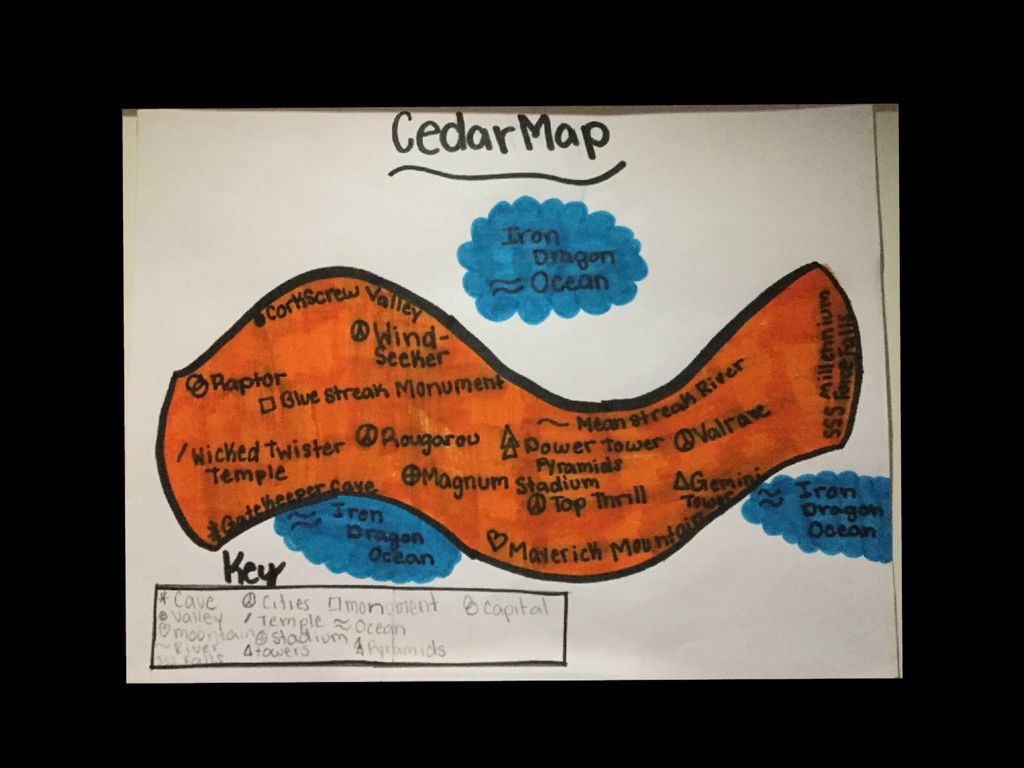 Cedar Map
Iron
Dragon
Ocean
Corkscrew Valley
Wind-
Seeker
Raptor
Blue streak Monument
Mean streak River
SSS Millennium
Force Falls
Wicked Twister
Temple
Rougarou
Power Tower
Pyramids
Valrave
Magnum Stadium
Top Thrill
Gemini
Tower
Gatekeeper Cave
Maverick Mountain
Iron
Dragon
Ocean
Iron
Dragon
Ocean
Key
Cave
Cities
monument
Capital
Valley
Temple
Ocean
mountain
Stadium
River
towers
Pyramids
SSS Falls